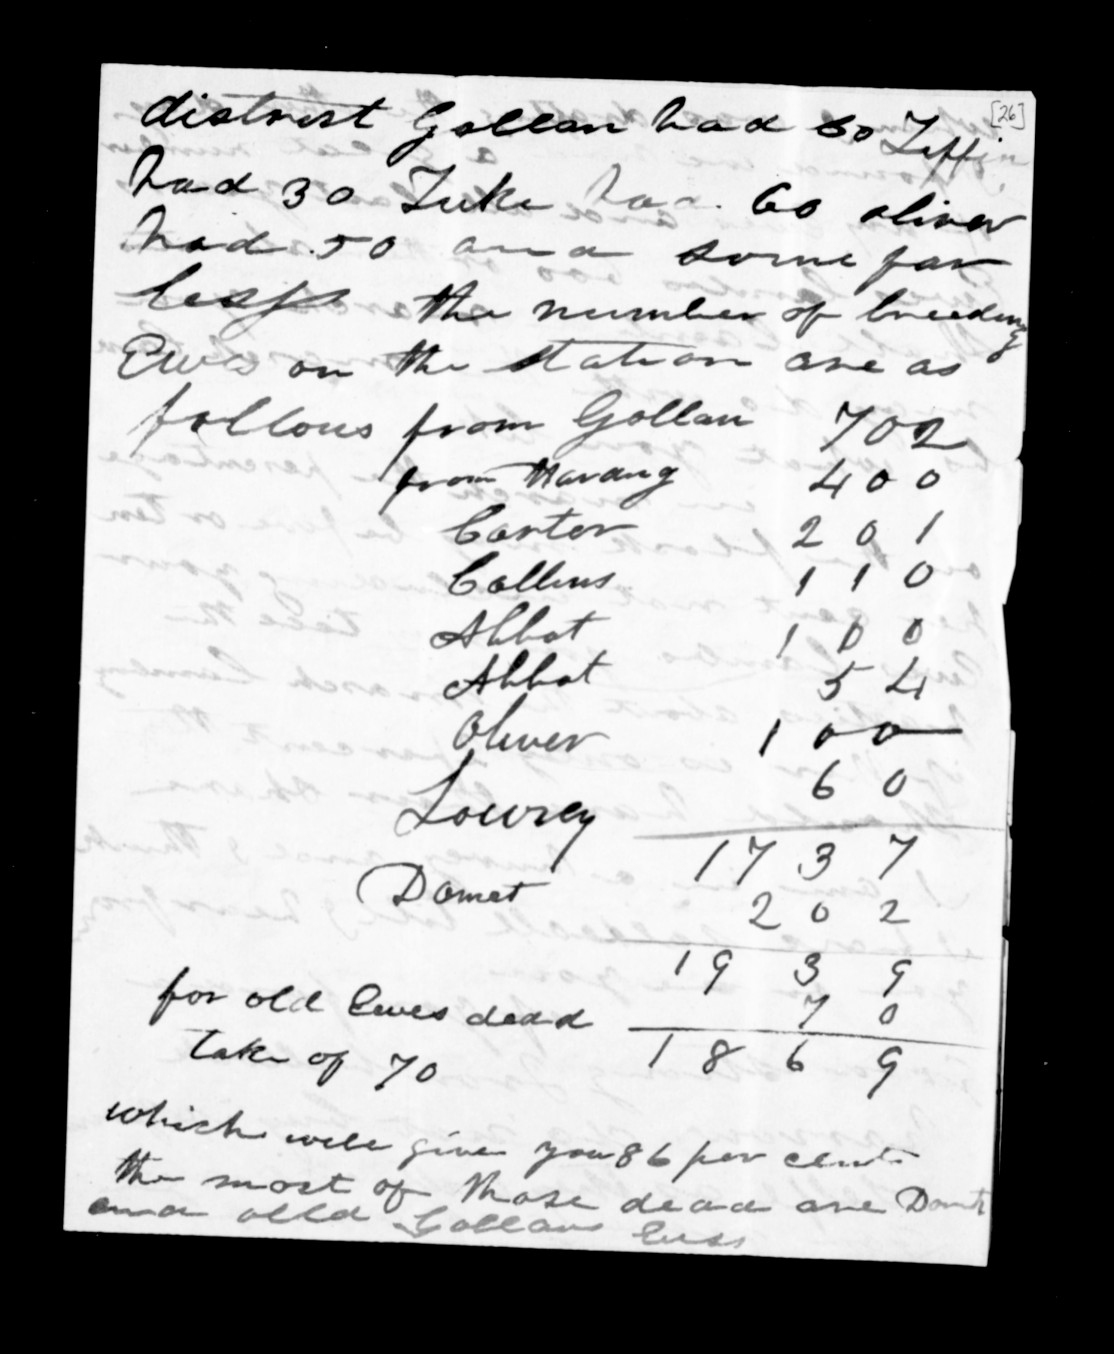 [26]
district Gollan had 60 Tiffin
had 30 Tuke had 60 oliver
had .50 and some far
less the number of breeding
Ewes on the station are as
follows from Gollan 702
from Harding 400
Carter 201
Collins 110
Abbot 100
Abbot 54
Oliver 100
Lowrey 60
1737
Domet 202
1939
for old Ewes dead 70
take of 70 1869
which will give you 86 per cent
the most of those dead are Domets
and olld Gollans Ews